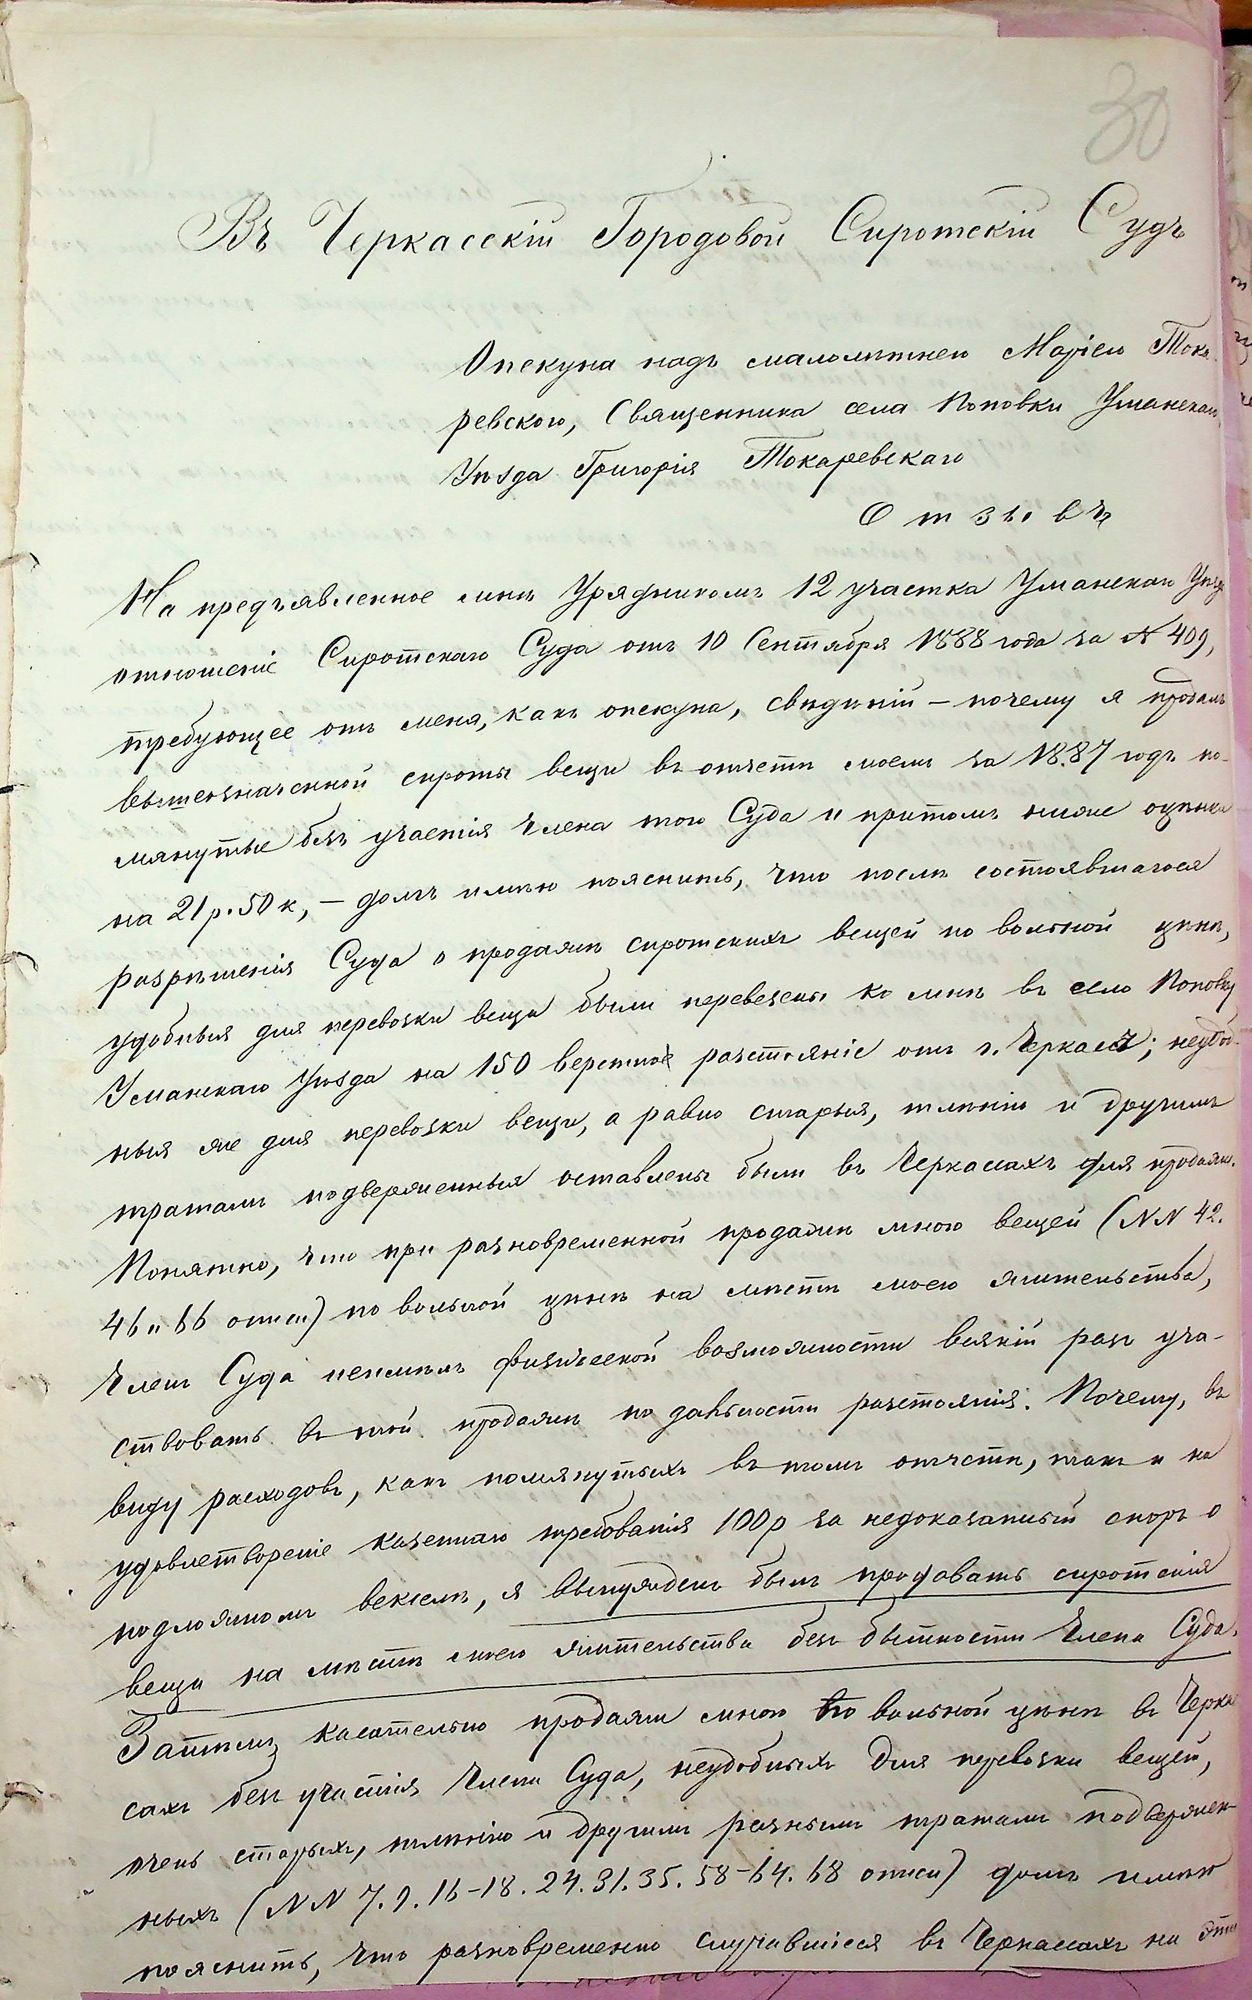 30
Въ Черкасскій Городовой Сиротскій Судъ
Опекуна надъ малолѣтнею Маріею Тока-
ревскою, Священника села Поповки Уманскаго
Уѣзда Григорія Токаревскаго
Отзывъ
На предъявленное мнѣ Урядникомъ 12 участка Уманскаго Уѣзда
отношеніе Сиротскаго Суда отъ 10 Сентября 1888 года за N 409,
требующее отъ меня, какъ опекуна, свѣдѣній – почему я продалъ
вышеозначенной сироты вещи въ отчетѣ моемъ за 1887 годъ по-
мянутые безъ участія Члена того Суда и притомъ ниже оцѣнки
на 21 р. 50 к, – долгъ имѣю пояснить, что послѣ состоявшагося
разрѣшенія Суда о продажѣ сиротскихъ вещей по вольной цѣнѣ,
удобныя для перевозки вещи были перевезены ко мнѣ въ село Поповку
Уманскаго Уѣзда на 150 верстное разстояніе отъ г. Черкассъ; неудоб-
ныя же для перевозки вещи, а равно старыя, тлѣнію и другимъ
тратамъ подверженныя оставлены были въ Черкассахъ для продажи.
Понятно, что при разновременной продажѣ мною вещей (NN 42.
46 и 66 описи) по вольной цѣнѣ на мѣстѣ моего жительства,
Членъ Суда неимѣлъ физической возможности всякій разъ уча-
ствовать въ той продажѣ по дальности разстоянія. Почему, въ
виду расходовъ, какъ помянутыхъ въ томъ отчетѣ, такъ и на
удовлетвореніе казеннаго требованія 100 р за недоказанный споръ о
подложномъ векселѣ, я вынужденъ былъ продавать сиротскія
вещи на мѣстѣ моего жительства безъ бытности Члена Суда.
Затѣмъ, касательно продажи мною по вольной цѣнѣ въ Черкас
сахъ безъ участія Члена Суда, неудобныхъ для перевозки вещей,
очень старыхъ, тлѣнію и другимъ разнымъ тратамъ подвержен-
ныхъ (NN 7. 9. 16–18. 24. 31. 35. 58–64. 68 описи) долгъ имѣю
пояснить, что разновременно случавшіеся въ Черкассахъ на эти